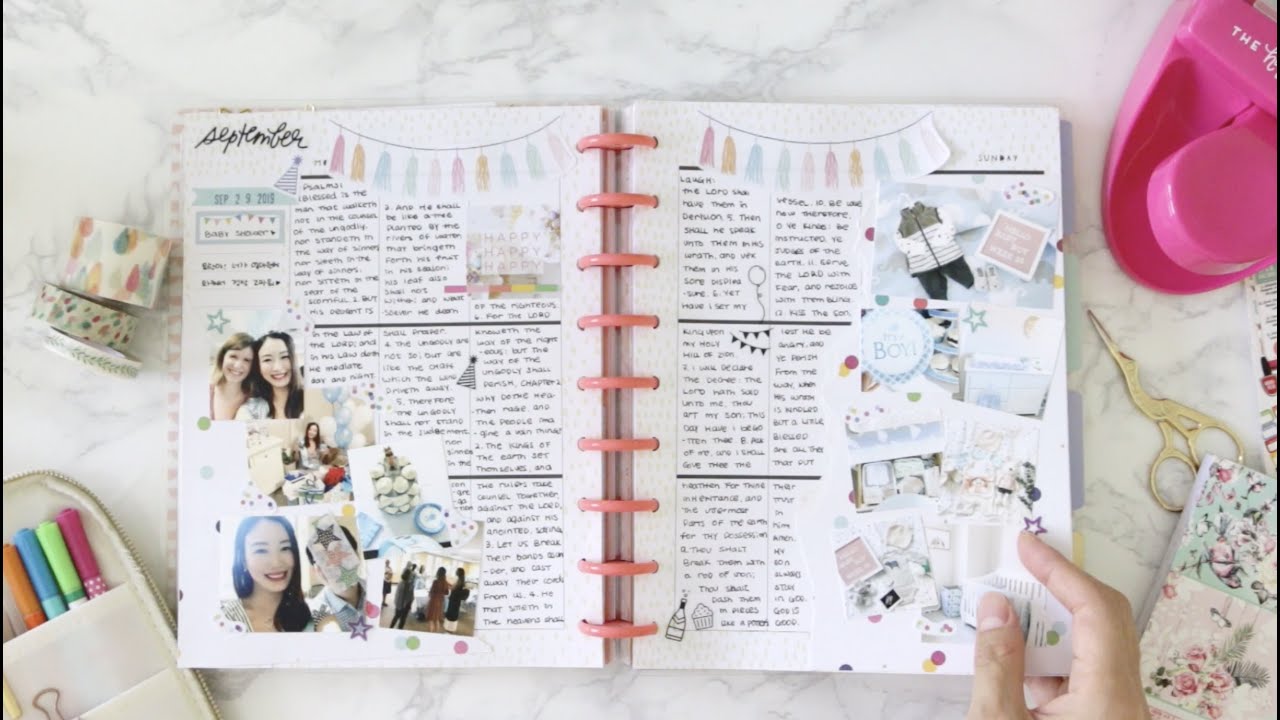 september
MO
SEP 29 2019
BABY SHOWER
PSALM 1
1 BLESSED IS
MAN THAT WALKETH
NOT IN THE COUNSEL
OF THE UNGODLY,
NOR STANDETH IN
THE WAY OF SINNERS
NOR SITTETH IN THE
SEAT OF THE
SCORNFUL. 2. BUT
HIS DELIGHT IS
IN THE LAW OF
THE LORD; AND
IN HIS LAW DOTH
HE MEDIATE
DAY AND NIGHT.
3. AND HE SHALL
BE LIKE A TREE
PLANTED BY THE
RIVERS OF WATER
THAT BRINGETH
FORTH HIS FRUIT
IN HIS SEASON;
HIS LEAF ALSO
SHALL NOT
WITHER; AND WHAT
SOEVER HE DOETH
SHALL PROSPER.
4. THE UNGODLY ARE
NOT SO; BUT ARE
LIKE THE CHAFF
WHICH THE WIND
DRIVETH AWAY.
5. THEREFORE
THE UNGODLY
SHALL NOT STAND
IN THE JUDGEMENT,
NOR
SINNERS
IN THE
CON
HAPPY
HAPPY
HAPPY
OF THE RIGHTEOUS.
6. FOR THE LORD
KNOWETH THE
WAY OF THE RIGHT
-EOUS; BUT THE
WAY OF THE
UNGODLY SHALL
PERISH. CHAPTER 2
WHY DO THE HEA-
THEN RAGE, AND
THE PEOPLE IMA
-GINE A VAIN THING?
2. THE KINGS OF
THE EARTH SET
THEMSELVES, AND
THE RULERS TAKE
COUNSEL TOGETHER,
AGAINST THE LORD,
AND AGAINST HIS
ANOINTED, SAYING
3. LET US BREAK
THEIR BANDS ASUN
DER, AND CAST
AWAY THEIR CORDS
FROM US. 4. HE
THAT SITTETH IN
THE HEAVENS SHALL
LAUGH:
THE LORD SHALL
HAVE THEM IN
DERISION. 5. THEN
SHALL HE SPEAK
UNTO THEM IN HIS
WRATH, AND VEX
THEM IN HIS
SORE DISPLEA
-SURE. 6. YET
HAVE I SET MY
KING UPON
MY HOLY
HILL OF ZION.
7. I WILL DECLARE
THE DECREE: THE
LORD HATH SAID
UNTO ME, THOU
ART MY SON; THIS
DAY HAVE I BEGO
-TTEN THEE. 8. ASK
OF ME, AND I SHALL
GIVE THEE THE
HEATHEN FOR THINE
INHERITANCE, AND
THE UTTERMOST
PARTS OF THE EARTH
FOR THY POSSESSION.
9. THOU SHALT
BREAK THEM WITH
A ROD OF IRON;
THOU SHALT
DASH THEM
IN PIECES
LIKE A POTTER'S
VESSEL. 10. BE WISE
NOW THEREFORE,
O YE KINGS: BE
INSTRUCTED, YE
JUDGES OF THE
EARTH. 11. SERVE
THE LORD WITH
FEAR, AND REJOICE
WITH TREMBLING.
12. KISS THE SON,
LEST HE BE
ANGRY, AND
YE PERISH
FROM THE
WAY, WHEN
HIS WRATH
IS KINDLED
BUT A LITTLE.
BLESSED
ARE ALL THEY
THAT PUT
THEIR
TRUST
IN
HIM.
AMEN.
MY
SON
ALWAYS
STAY
IN GOD.
GOD IS
GOOD.
SUNDAY
BOY!
THE